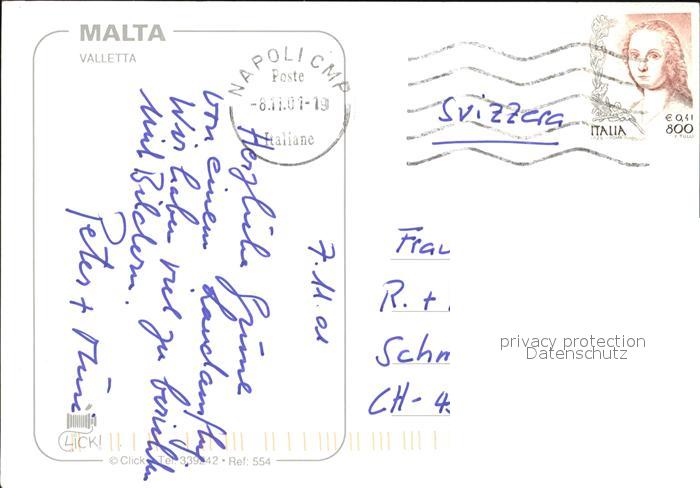 MALTA
VALLETTA
NAPOLI CMP
Poste
-8.11.01-19
Italiane
Svizzera
€ 0,41
ITALIA 800
7.11.01
Herzliche Grüsse
von einem Landausflug
Wir haben viel zu berichten
und Bildern.
Peter +
Frau
R. +
Schm
CH-45
privacy protection
Datenschutz
CLICK!
© Click • Tel: 339242 • Ref: 554